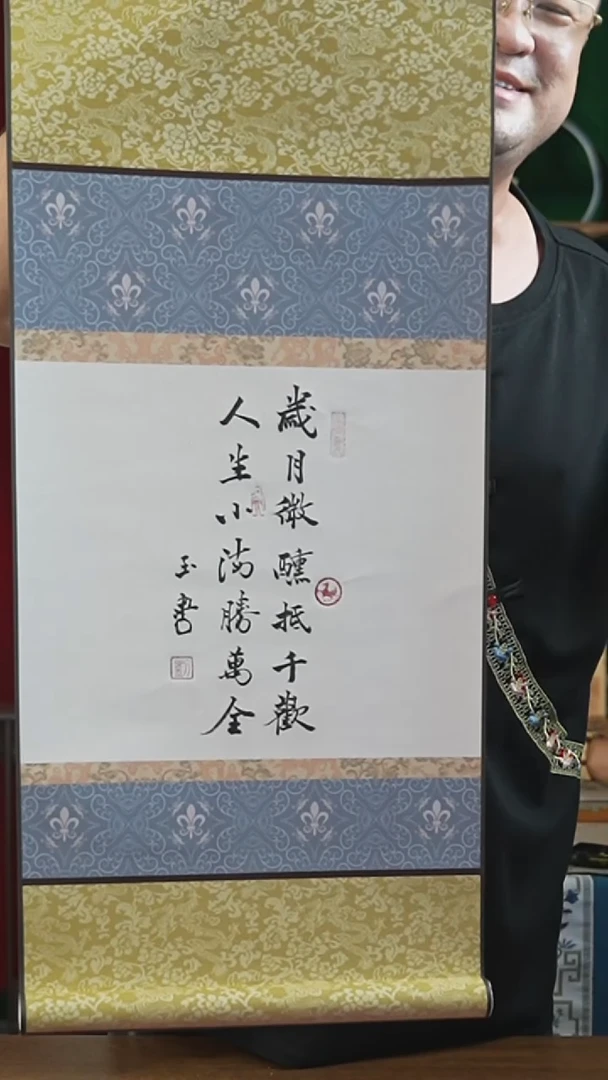 歲月微醺抵千歡
人生小滿勝萬全
玉書